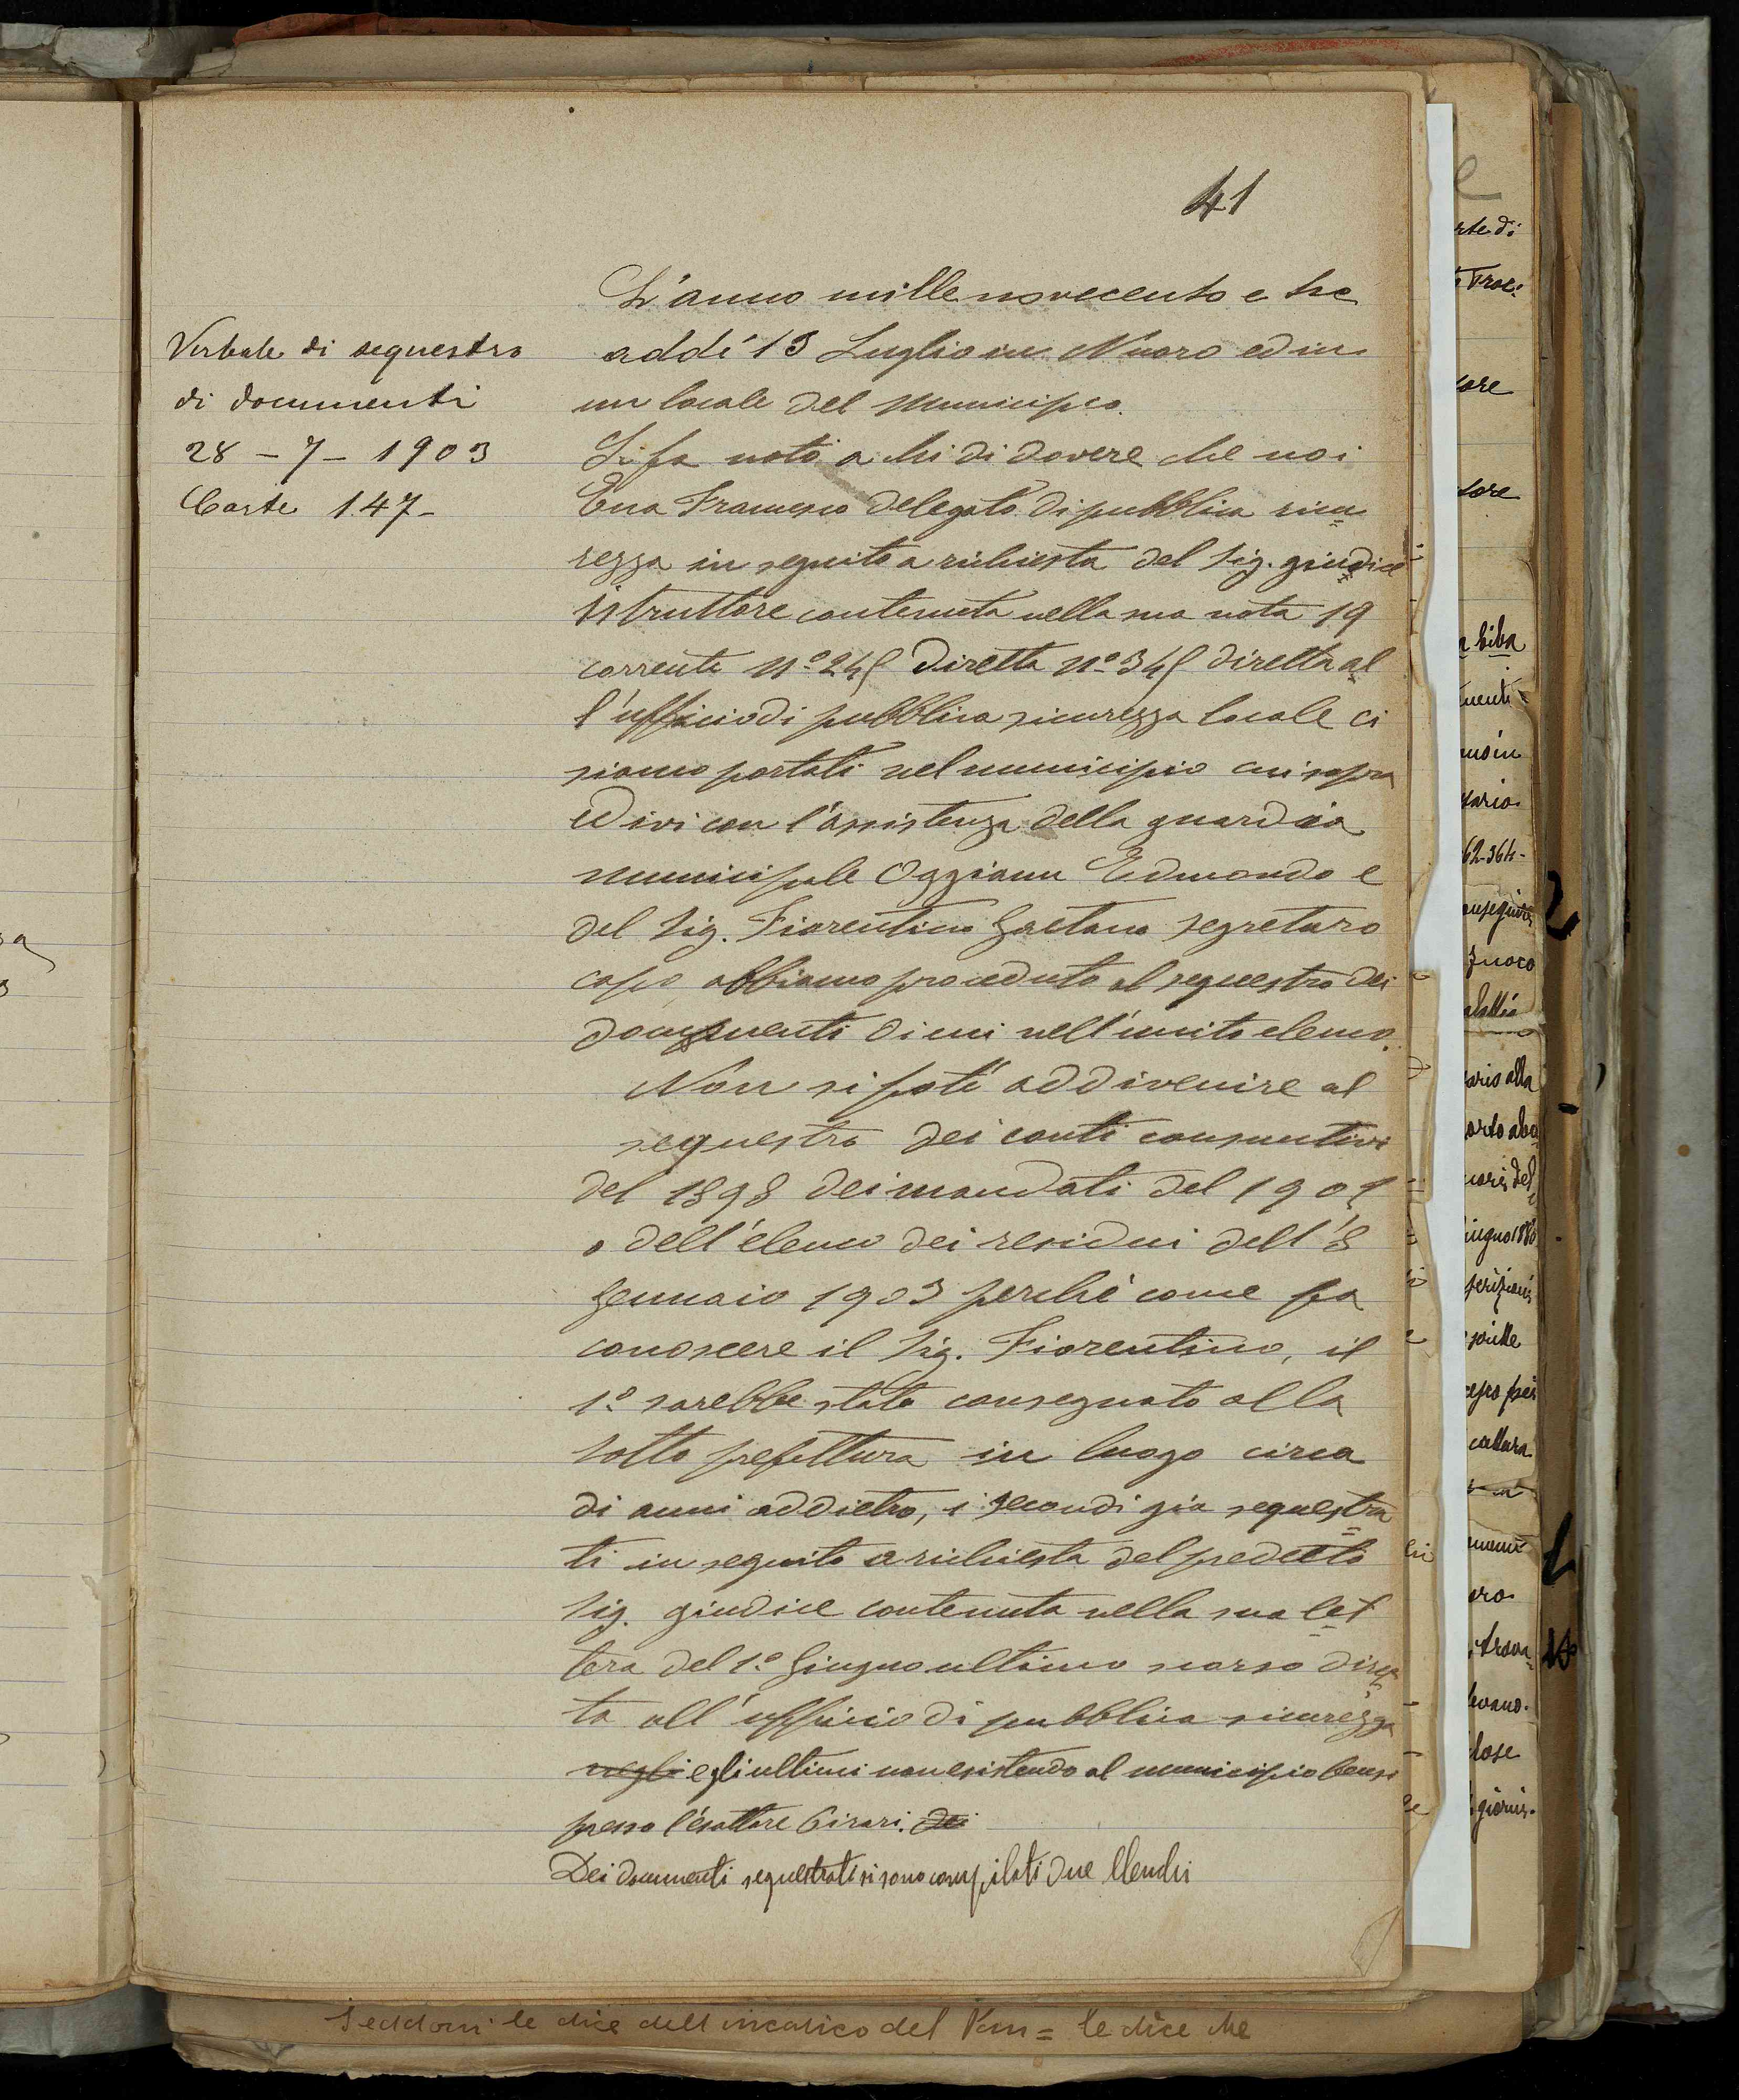 41
Verbale di sequestro
di documenti
28 - 7 - 1903
Carte 147-
L'anno mille novecento e tre
addì 13 Luglio in Nuoro ed in
un locale del Municipio.
Si fa noto a chi di dovere che noi
Ena Francesco delegato di pubblica sicu
rezza in seguito a richiesta del Sig. giudice
istruttore contenuta nella sua nota 19
corrente n° 245 diretta n° 345 diretta al
l'ufficio di pubblica sicurezza locale ci
siamo portati nel municipio cui sopra
ed ivi con l'assistenza della guardia
municipale Oggianu Edmondo e
del Sig. Fiorentino Gaetano segretaro
capo abbiamo proceduto al sequestro dei
documenti di cui nell'unito elenco.
Non si poté addivenire al
sequestro dei conti consuntivi
del 1898 dei mandati del
o dell'elenco dei residui dell'8
Gennaio 1903 perché come fa
conoscere il Sig. Fiorentino, il
1° sarebbe stato consegnato alla
Sotto prefettura in luogo circa
di anni addietro, i secondi già sequestra
ti in seguito a richiesta del predetto
Sig. giudice contenuta nella sua let
tera del 1° Giugno ultimo scorso diret
ta all'ufficio di pubblica sicurezza
negli e gli ultimi non esistendo al municipio bensì
presso l'esattore Cirari. dei
Dei documenti sequestrati si sono compilati due elenchi
le dice dell'incarico del = le dice che